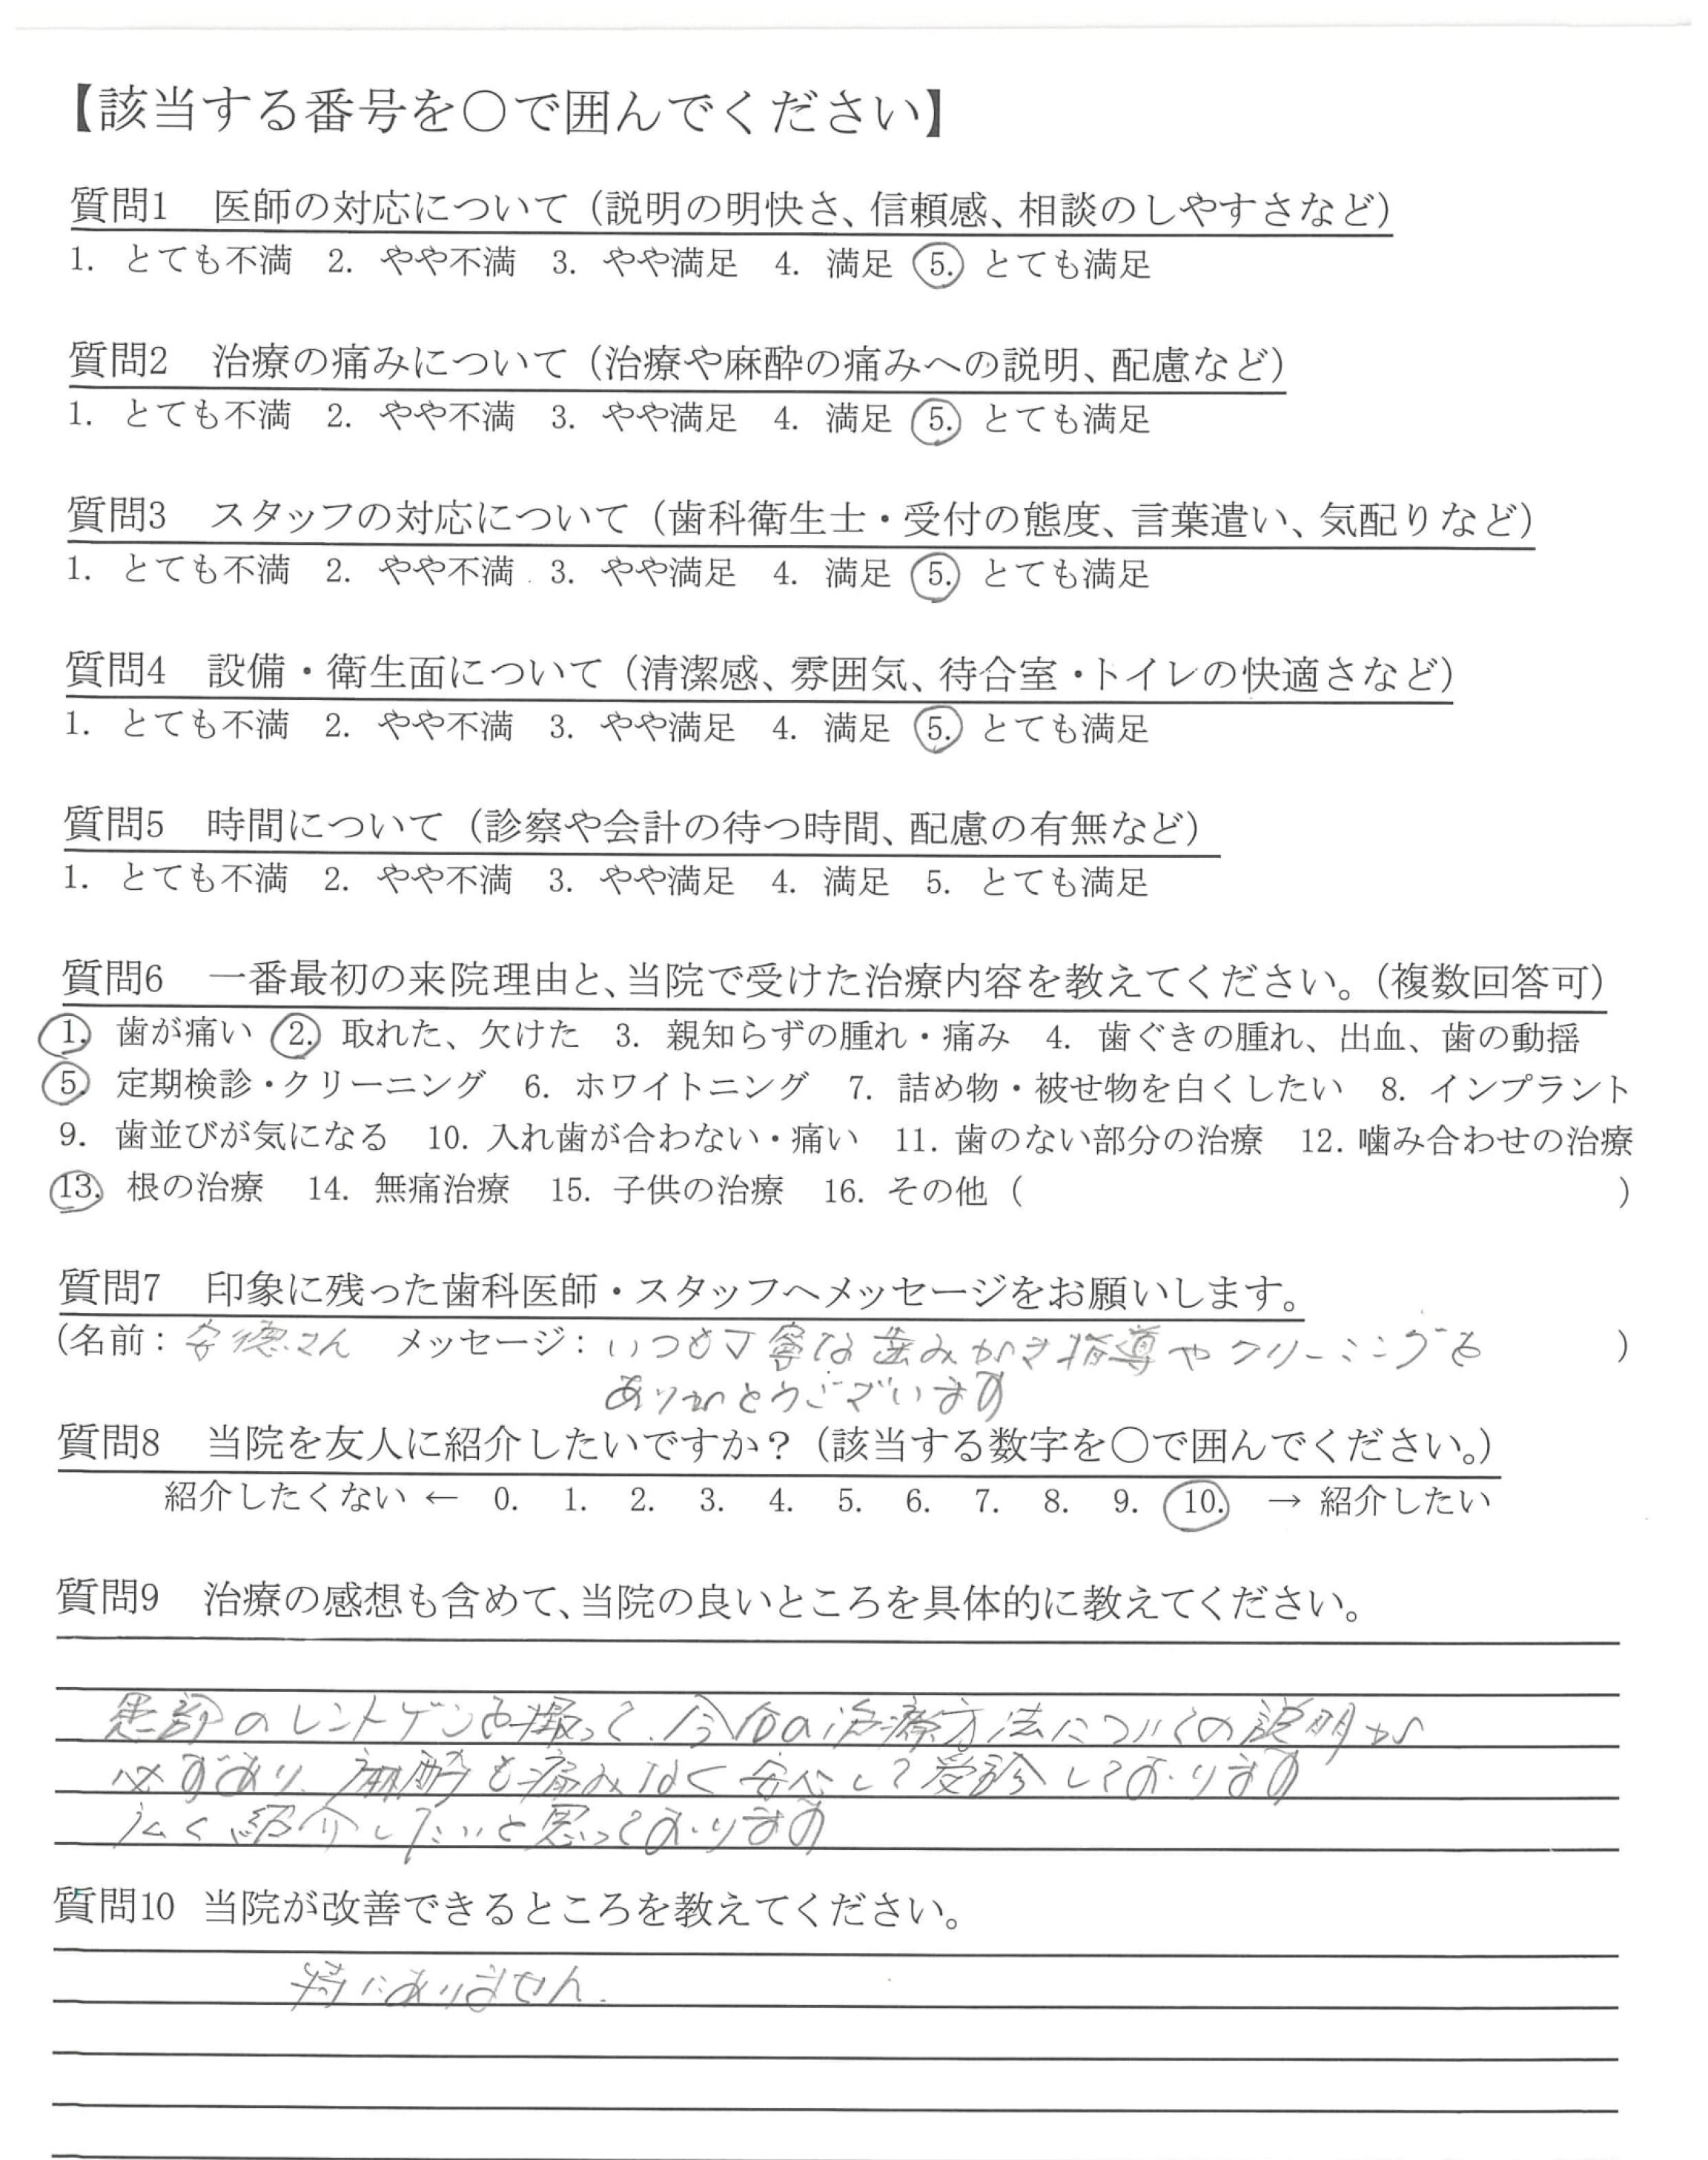 【該当する番号を〇で囲んでください】
質問1　医師の対応について（説明の明快さ、信頼感、相談のしやすさなど）
1. とても不満　2. やや不満　3. やや満足　4. 満足　5. とても満足
質問2　治療の痛みについて（治療や麻酔の痛みへの説明、配慮など）
1. とても不満　2. やや不満　3. やや満足　4. 満足　5. とても満足
質問3　スタッフの対応について（歯科衛生士・受付の態度、言葉遣い、気配りなど）
1. とても不満　2. やや不満　3. やや満足　4. 満足　5. とても満足
質問4　設備・衛生面について（清潔感、雰囲気、待合室・トイレの快適さなど）
1. とても不満　2. やや不満　3. やや満足　4. 満足　5. とても満足
質問5　時間について（診察や会計の待つ時間、配慮の有無など）
1. とても不満　2. やや不満　3. やや満足　4. 満足　5. とても満足
質問6　一番最初の来院理由と、当院で受けた治療内容を教えてください。（複数回答可）
1. 歯が痛い　2. 取れた、欠けた　3. 親知らずの腫れ・痛み　4. 歯ぐきの腫れ、出血、歯の動揺
5. 定期検診・クリーニング　6. ホワイトニング　7. 詰め物・被せ物を白くしたい　8. インプラント
9. 歯並びが気になる　10. 入れ歯が合わない・痛い　11. 歯のない部分の治療　12. 噛み合わせの治療
13. 根の治療　14. 無痛治療　15. 子供の治療　16. その他（　　　）
質問7　印象に残った歯科医師・スタッフへメッセージをお願いします。
（名前：安徳さん　メッセージ：いつも丁寧な歯みがき指導やクリーニングを　）
ありがとうございます
質問8　当院を友人に紹介したいですか？（該当する数字を〇で囲んでください。）
紹介したくない ← 0. 1. 2. 3. 4. 5. 6. 7. 8. 9. 10. → 紹介したい
質問9　治療の感想も含めて、当院の良いところを具体的に教えてください。
患部のレントゲンを撮って、今後の治療方法についての説明が
必ずあり、麻酔も痛みなく安心して受診しております
広く紹介したいと思っております
質問10 当院が改善できるところを教えてください。
特にありません.